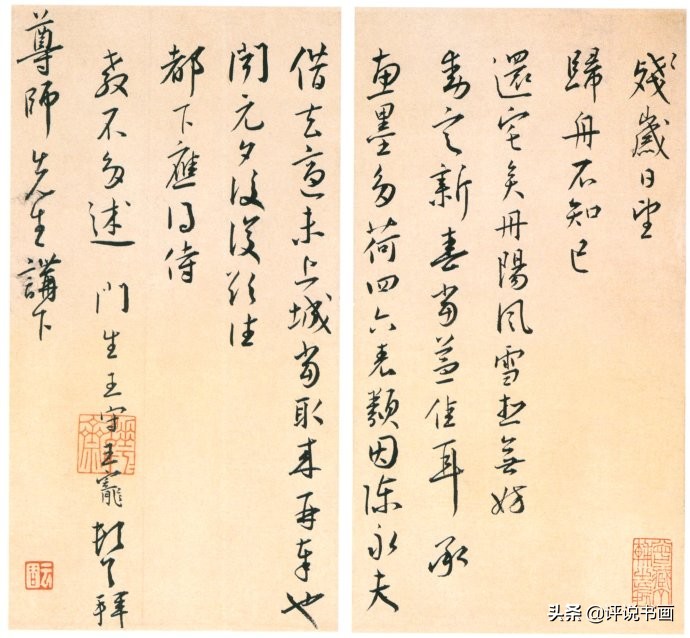 殘歲日望
歸舟不知已
還宅矣丹陽風雪想無妨
動定新喜當益佳耳承
惠墨多荷四六表類因陳永夫
借去適未上城當取來再奉也
聞元夕後復欲往
都下應得侍
教不多述 門生王守王寵頓首拜
尊師先生講下
头条 @评说书画